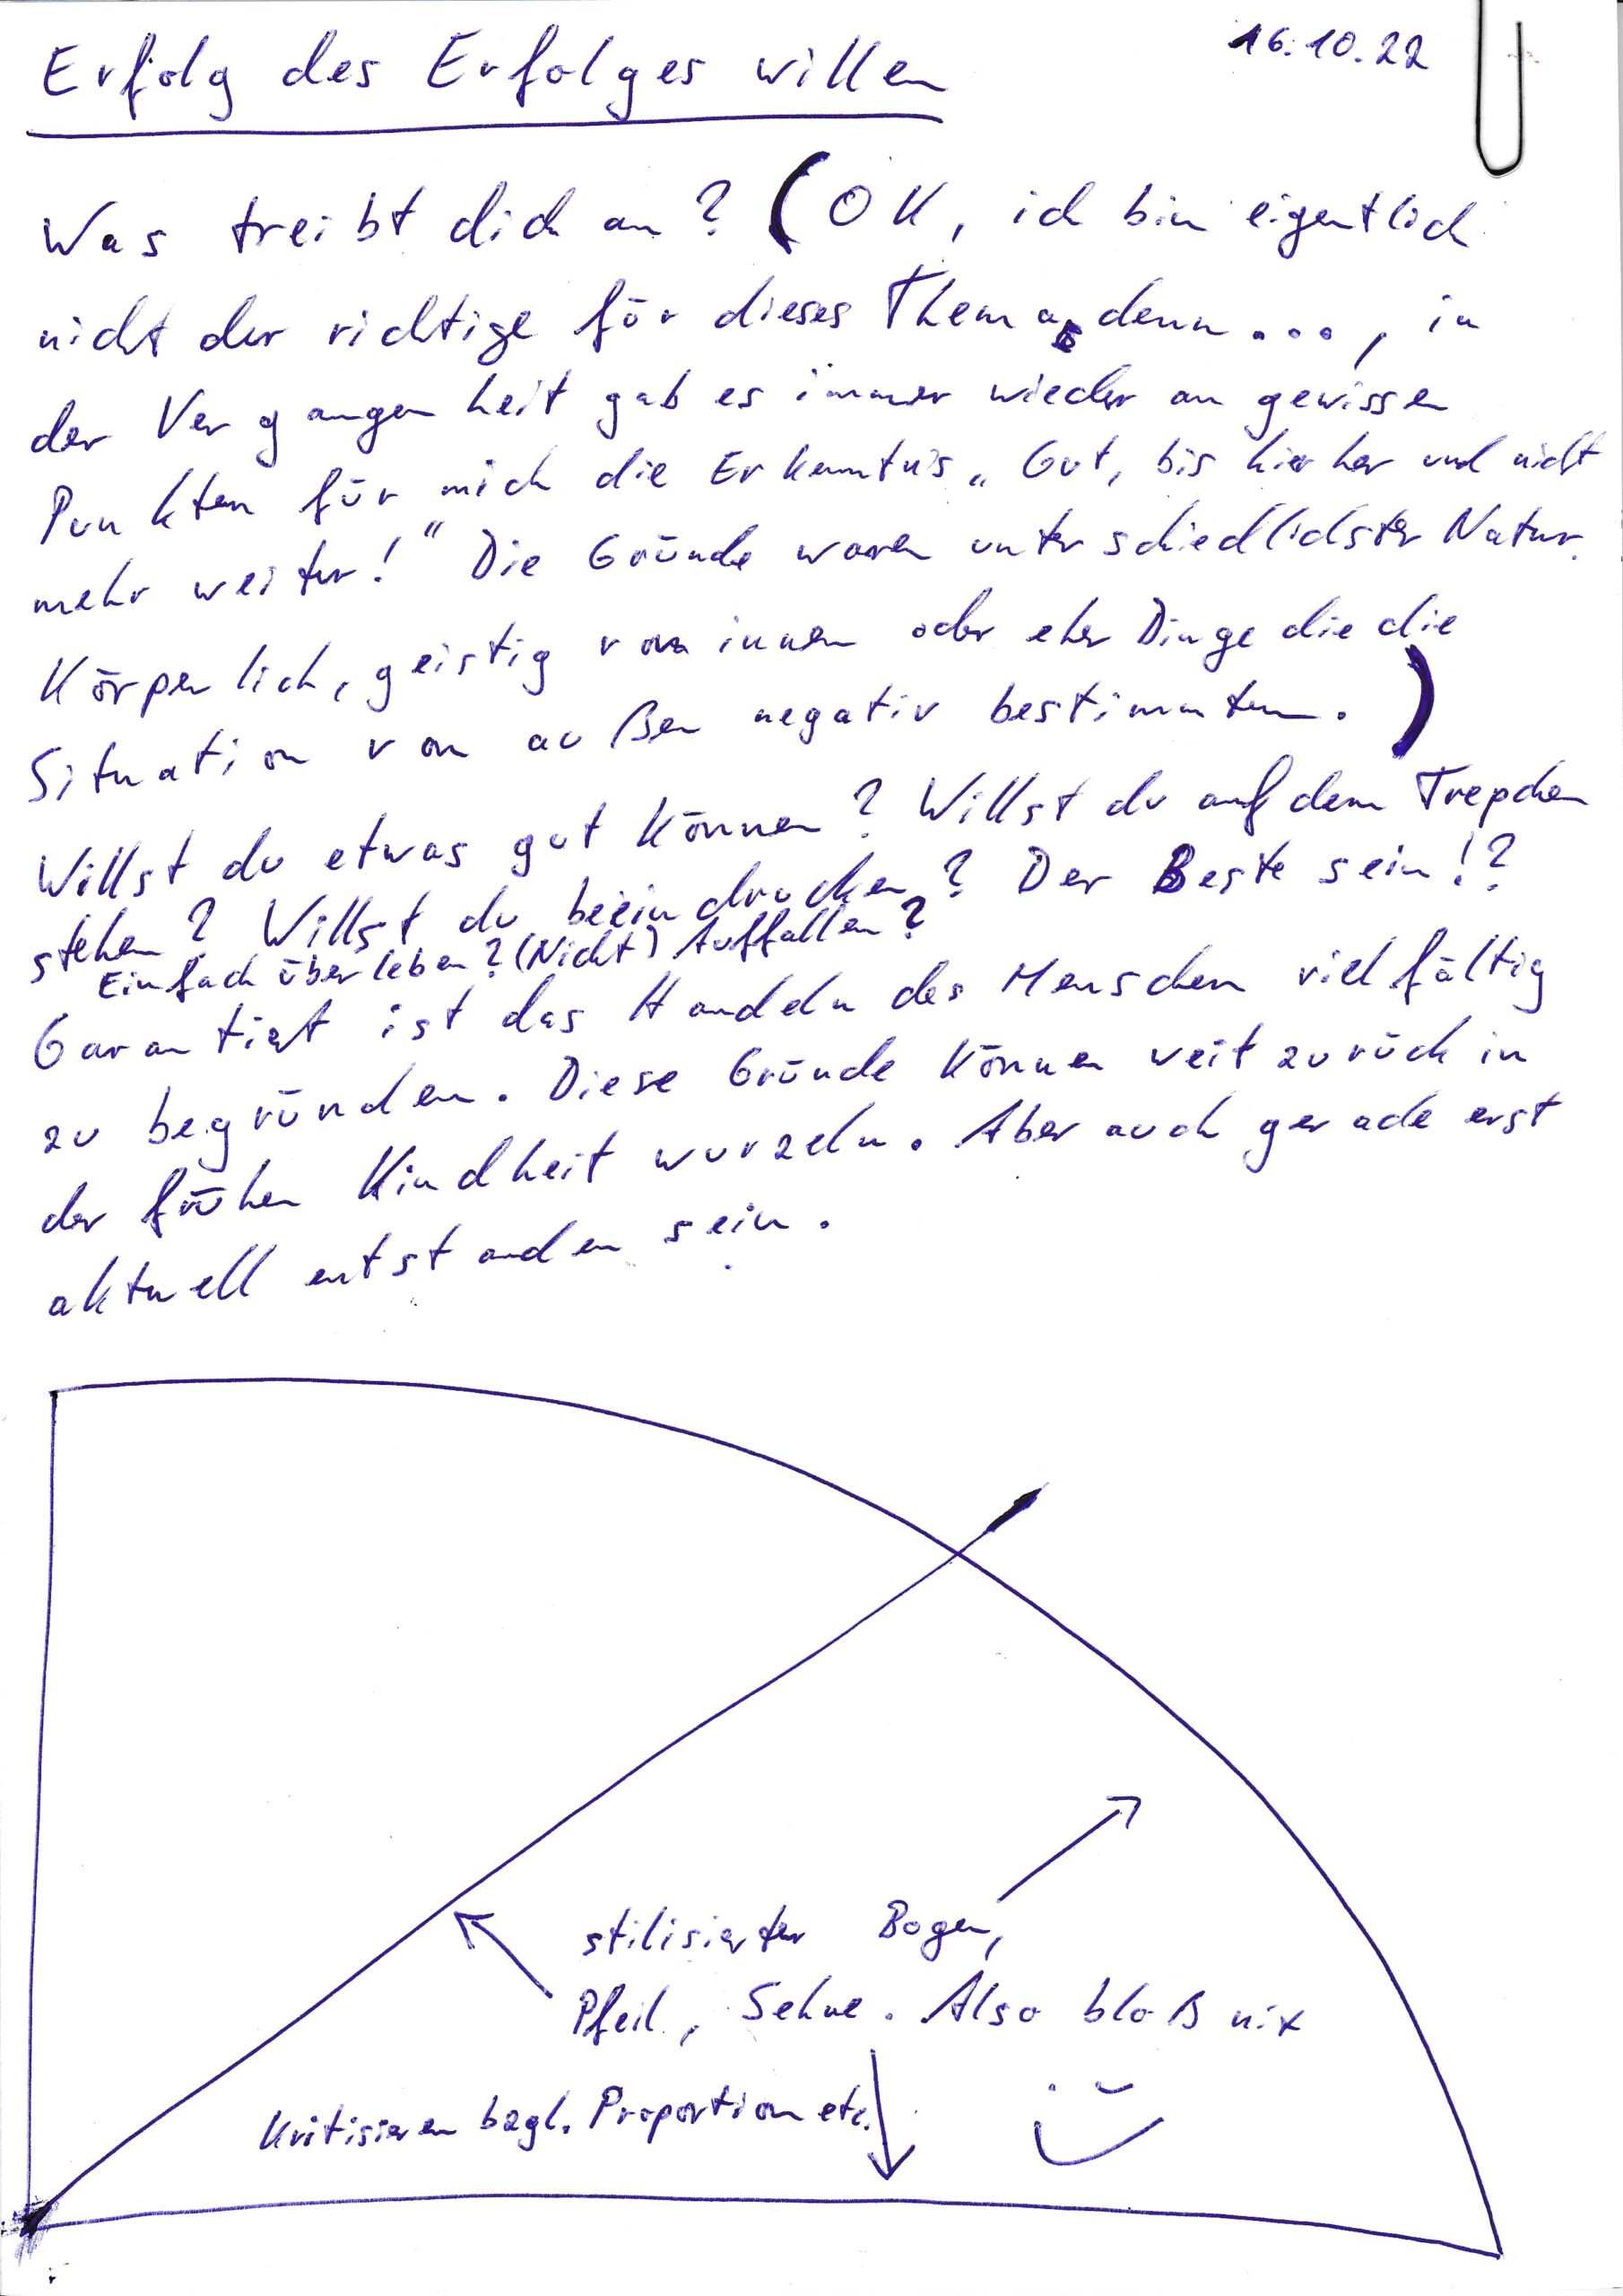 16.10.22
Erfolg des Erfolges willen
Was treibt dich an? (OK, ich bin eigentlich
nicht der richtige für dieses Thema, denn..., in
der Vergangenheit gab es immer wieder an gewissen
Punkten für mich die Erkenntnis „Gut, bis hierher und nicht
mehr weiter!" Die Gründe waren unterschiedlichster Natur.
Körperlich, geistig von innen oder eher Dinge die die
Situation von außen negativ bestimmten.)
Willst du etwas gut können? Willst du auf dem Trepchen
stehen? Willst du beeindrucken? Der Beste sein!?
Einfach überleben? (Nicht) Auffallen?
Garantiert ist das Handeln des Menschen vielfältig
zu begründen. Diese Gründe können weit zurück in
der frühen Kindheit wurzeln. Aber auch gerade erst
aktuell entstanden sein.
stilisierter Bogen,
Pfeil, Sehne. Also bloß nix
kritisieren bzgl. Proportion etc.